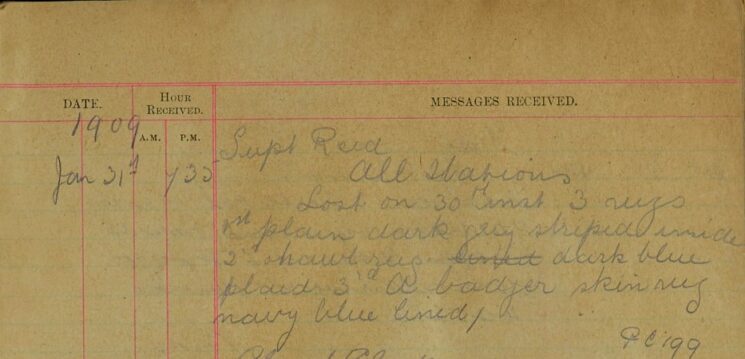 DATE.
HOUR RECEIVED.
MESSAGES RECEIVED.
1909
A.M. P.M.
Supt Reid
All Stations
Jan 31st 735
Lost on 30th inst 3 rugs
1st plain dark grey striped inside
2 shawl rug lined dark blue
plaid 3rd A badger skin rug
navy blue lined/
PC 199